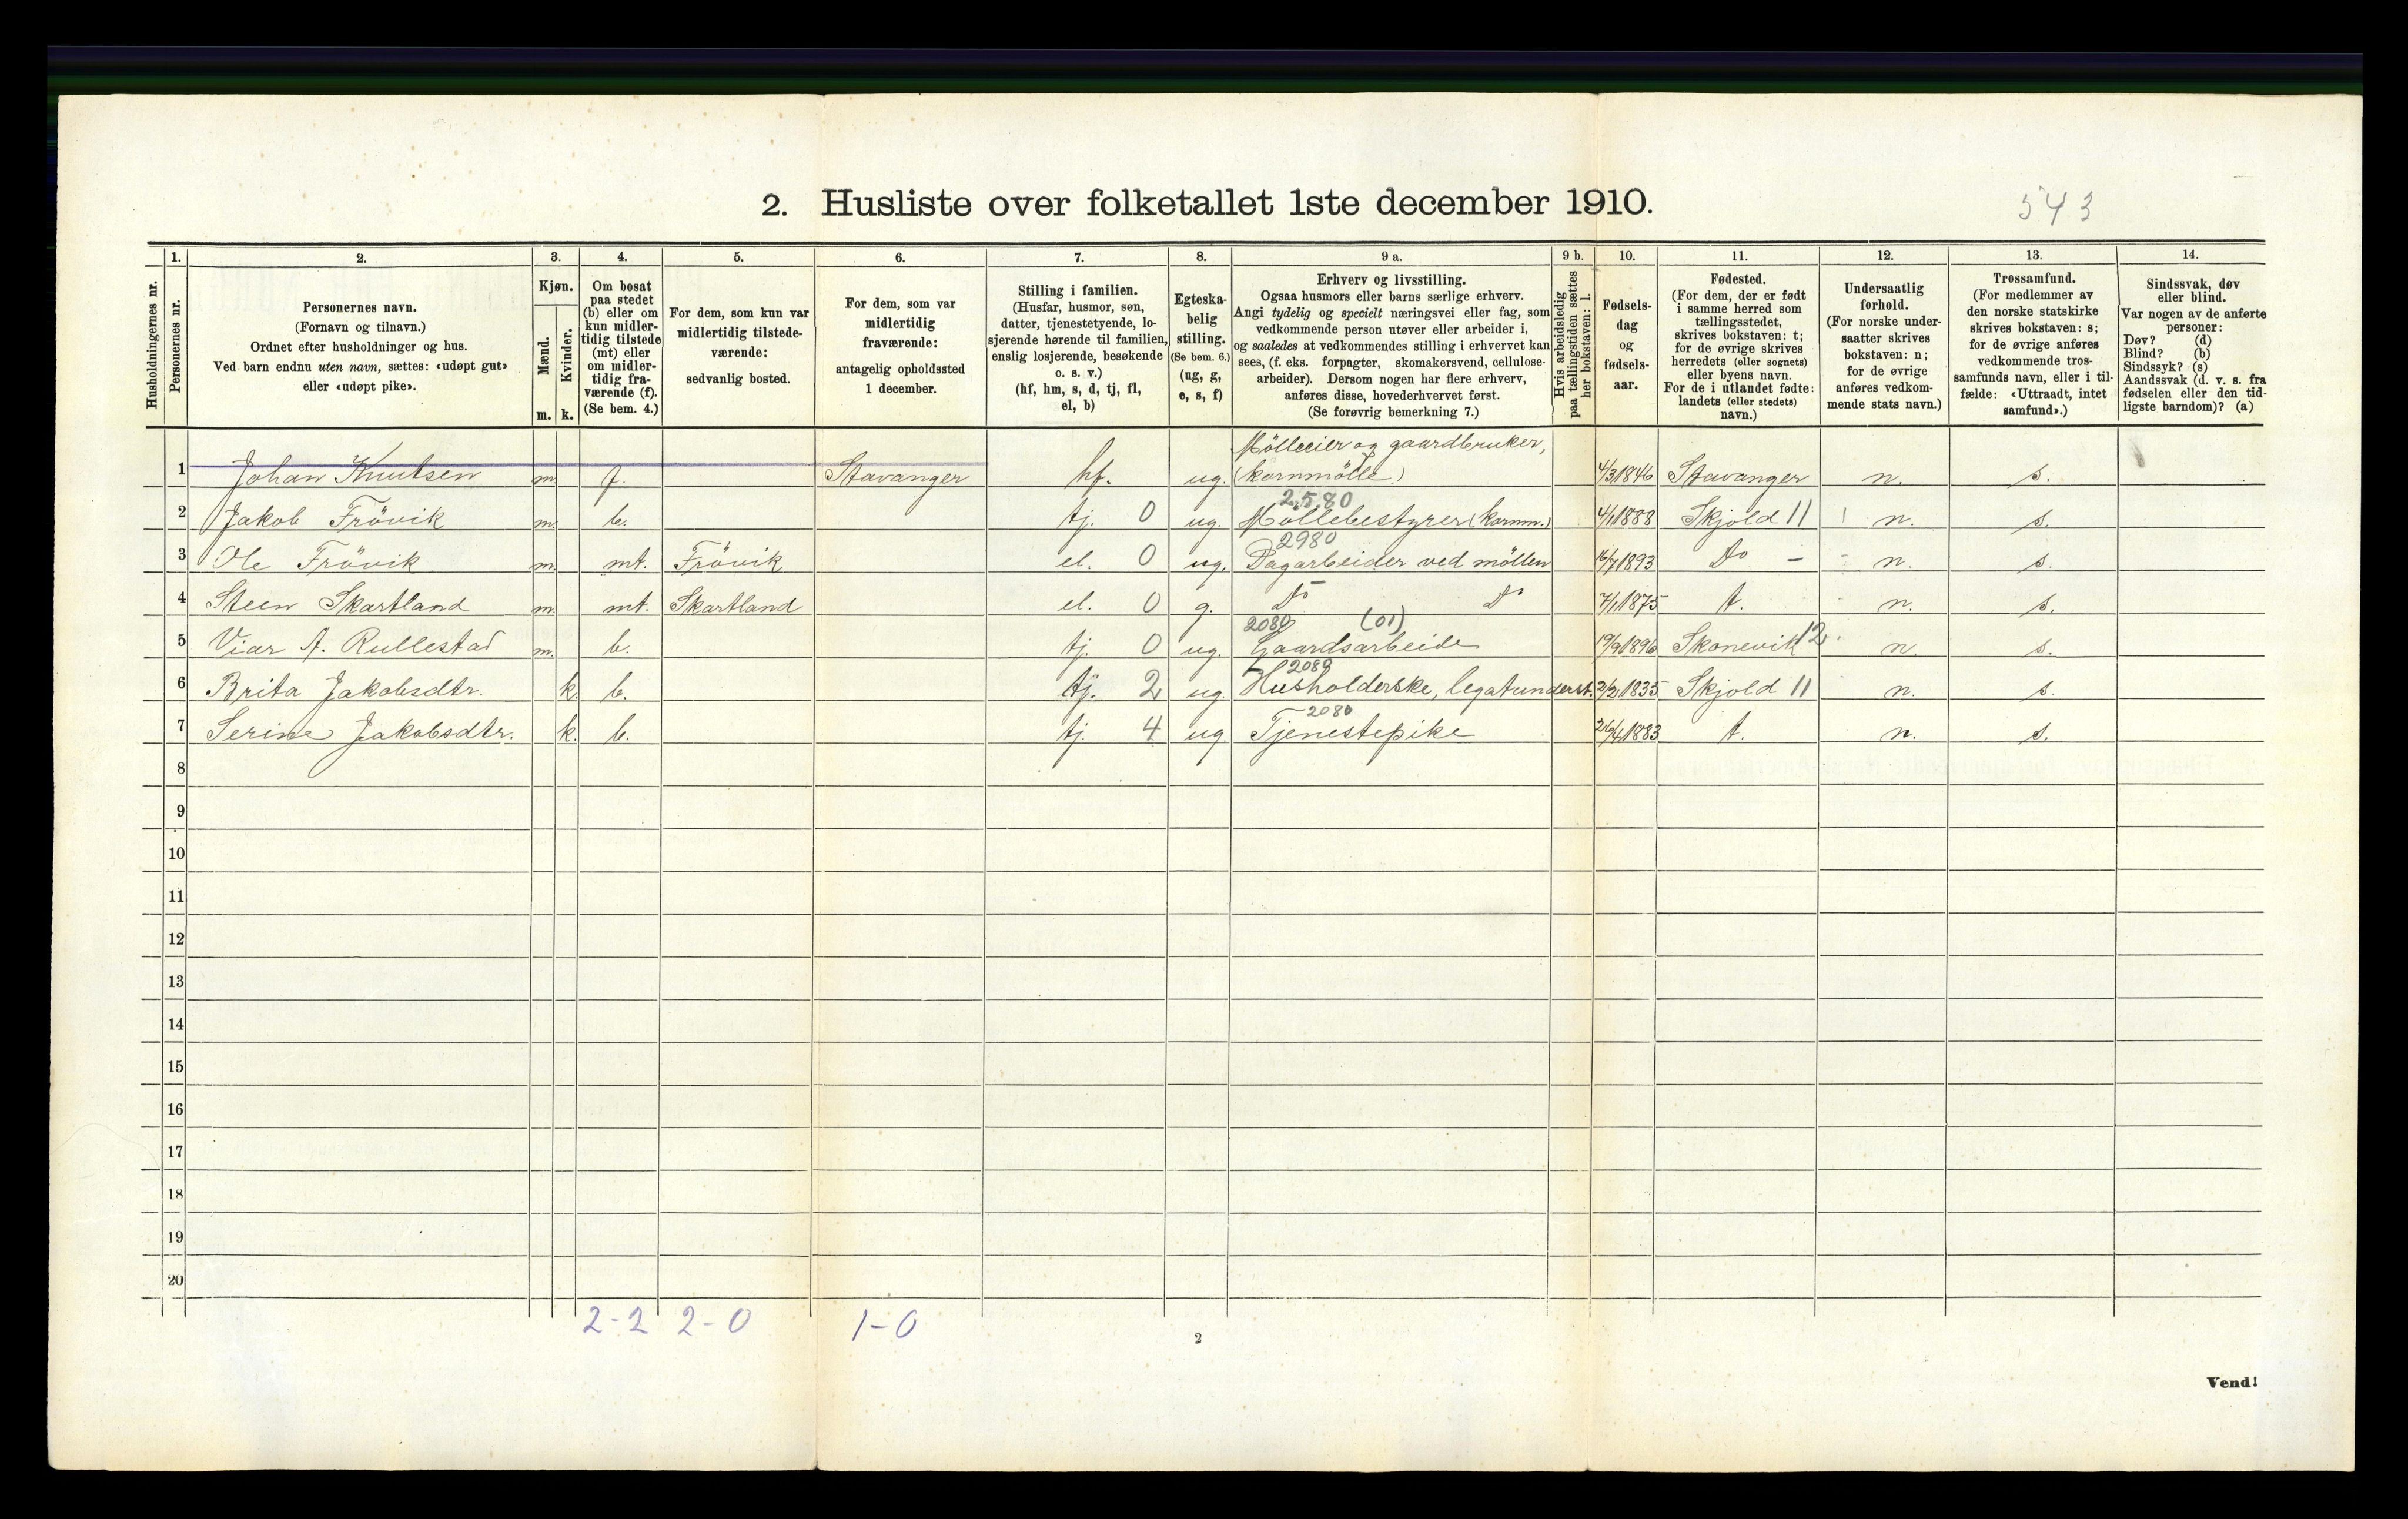 2. Husliste over folketallet 1ste december 1910.
543
Husholdningernes nr.
1. Personernes nr.
2. Personernes navn. (Fornavn og tilnavn.) Ordnet efter husholdninger og hus. Ved barn endnu uten navn, sættes: «udøpt gut» eller «udøpt pike».
3. Kjøn. Mænd. m. Kvinder. k.
4. Om bosat paa stedet (b) eller om kun midlertidig tilstede (mt) eller om midlertidig fraværende (f). (Se bem. 4.)
5. For dem, som kun var midlertidig tilstedeværende: sedvanlig bosted.
6. For dem, som var midlertidig fraværende: antagelig opholdssted 1 december.
7. Stilling i familien. (Husfar, husmor, søn, datter, tjenestetyende, losjerende hørende til familien, enslig losjerende, besøkende o. s. v.) (hf, hm, s, d, tj, fl, el, b)
8. Egteskabelig stilling. (Se bem. 6.) (ug, g, e, s, f)
9 a. Erhverv og livsstilling. Ogsaa husmors eller barns særlige erhverv. Angi tydelig og specielt næringsvei eller fag, som vedkommende person utøver eller arbeider i, og saaledes at vedkommendes stilling i erhvervet kan sees, (f. eks. forpagter, skomakersvend, cellulosearbeider). Dersom nogen har flere erhverv, anføres disse, hovederhvervet først. (Se forøvrig bemerkning 7.)
9 b. Hvis arbeidsledig paa tællingstiden sættes her bokstaven: l.
10. Fødselsdag og fødselsaar.
11. Fødested. (For dem, der er født i samme herred som tællingsstedet, skrives bokstaven: t; for de øvrige skrives herredets (eller sognets) eller byens navn. For de i utlandet fødte: landets (eller stedets) navn.)
12. Undersaatlig forhold. (For norske undersaatter skrives bokstaven: n; for de øvrige anføres vedkommende stats navn.)
13. Trossamfund. (For medlemmer av den norske statskirke skrives bokstaven: s; for de øvrige anføres vedkommende trossamfunds navn, eller i tilfælde: «Uttraadt, intet samfund».)
14. Sindssvak, døv eller blind. Var nogen av de anførte personer: Døv? (d) Blind? (b) Sindssyk? (s) Aandssvak (d. v. s. fra fødselen eller den tidligste barndom)? (a)
1 Johan Knutsen m. f. Stavanger hf. ug. Mölleeier og gaardbruker, (kornmölle) 4/3 1846 Stavanger n. s.
2580
2 Jakob Frövik m. b. tj. 0 ug. Möllebestyrer (kornm.) 4/1 1888 Skjold 11 n. s.
2980
3 Ole Frövik m. mt. Frövik el. 0 ug. Dagarbeider ved möllen 16/7 1893 Do - n. s.
4 Steen Skartland m. mt. Skartland el. 0 g. Do Do 7/1 1875 t. n. s.
2080 (01)
5 Viar A. Rullestad m. b. tj. 0 ug. Gaardsarbeide 19/9 1896 Skonevik 12. n. s.
2080
6 Brita Jakobsdtr. k. b. tj. 2 ug. Husholderske, legatunderst. 2/2 1835 Skjold 11 n. s.
2080
7 Serine Jakobsdtr. k. b. tj. 4 ug. Tjenestepike 26/4 1883 t. n. s.
8
9
10
11
12
13
14
15
16
17
18
19
20
2-2 2-0 1-0
2
Vend!